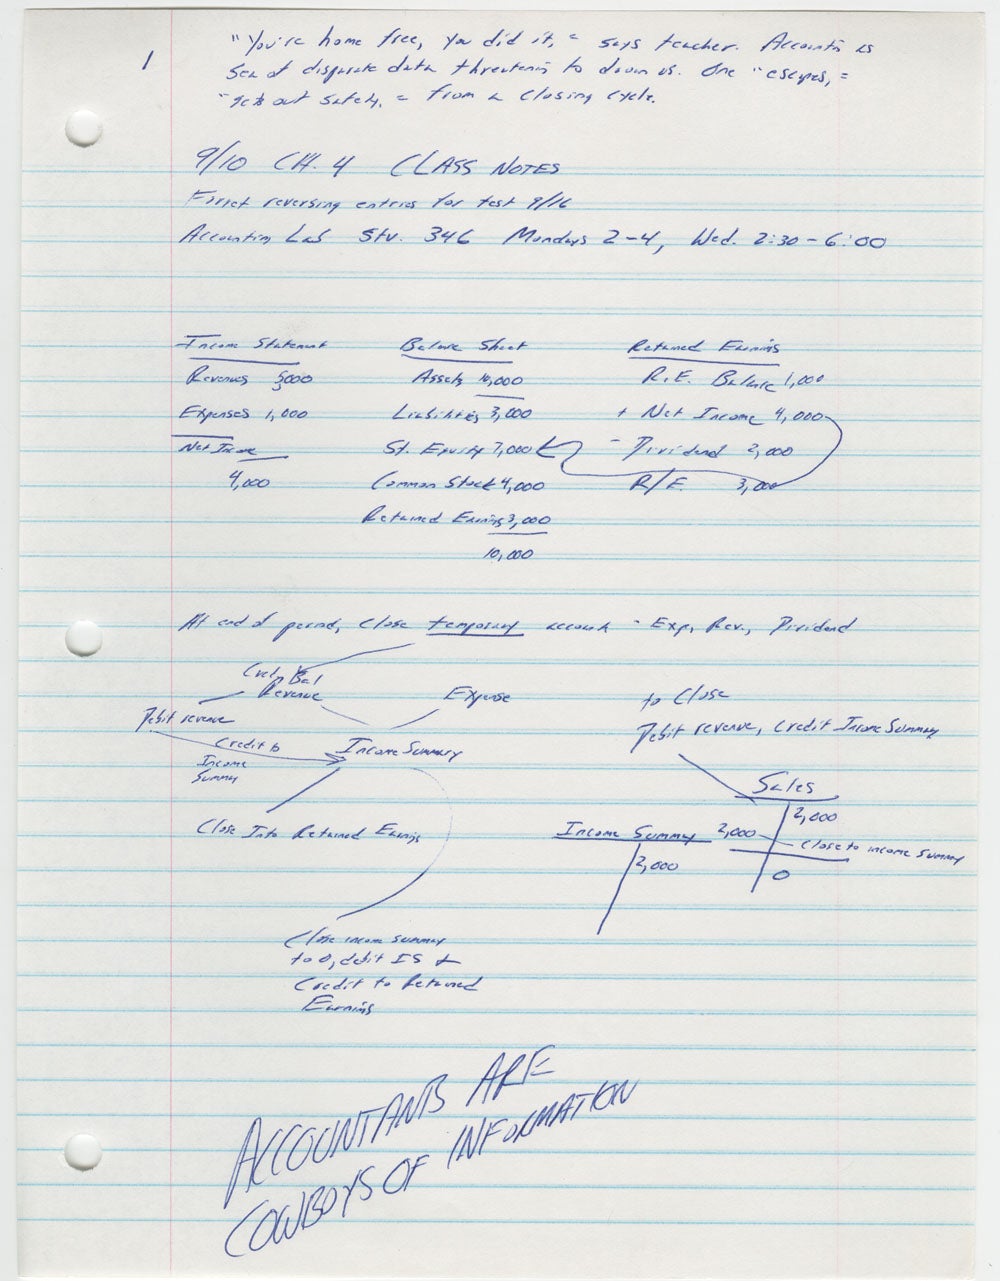 1
"You're home free, you did it," says teacher. Accounting is
sea of disparate data threatening to drown us. One "escapes,"
"gets out safely," from a closing cycle.
9/10 CH. 4 CLASS NOTES
Forget reversing entries for test 9/16
Accounting Lab Stv. 346 Mondays 2-4, Wed. 2:30-6:00
Income Statement Balance Sheet Retained Earnings
Revenues 5,000 Assets 10,000 R.E. Balance 1,000
Expenses 1,000 Liabilities 3,000 + Net Income 4,000
Net Income St. Equity 7,000 - Dividend 2,000
4,000 Common Stock 4,000 R/E 3,000
Retained Earnings 3,000
10,000
At end of period, close temporary accounts - Exp, Rev., Dividend
Bal
Revenue Expense to Close
Debit revenue Debit revenue, Credit Income Summary
Credit to Income Summary
Income
Summy
Sales
2,000
Close Into Retained Earnings Income Summary 2,000
Close to income summary
2,000
0
Close income summary
to 0, debit IS &
Credit to Retained
Earnings
ACCOUNTANTS ARE
COWBOYS OF INFORMATION